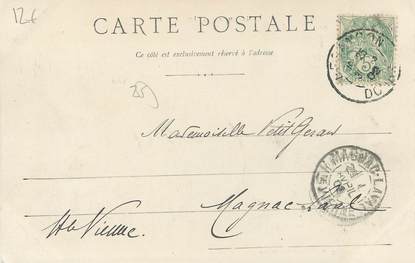 12€
CARTE POSTALE
Ce côté est exclusivement réservé à l'adresse
BESANÇON
DOUBS
25)
Mademoiselle Petit Gérard
MAGNAC-LAVAL
Magnac Laval
Hte Vienne